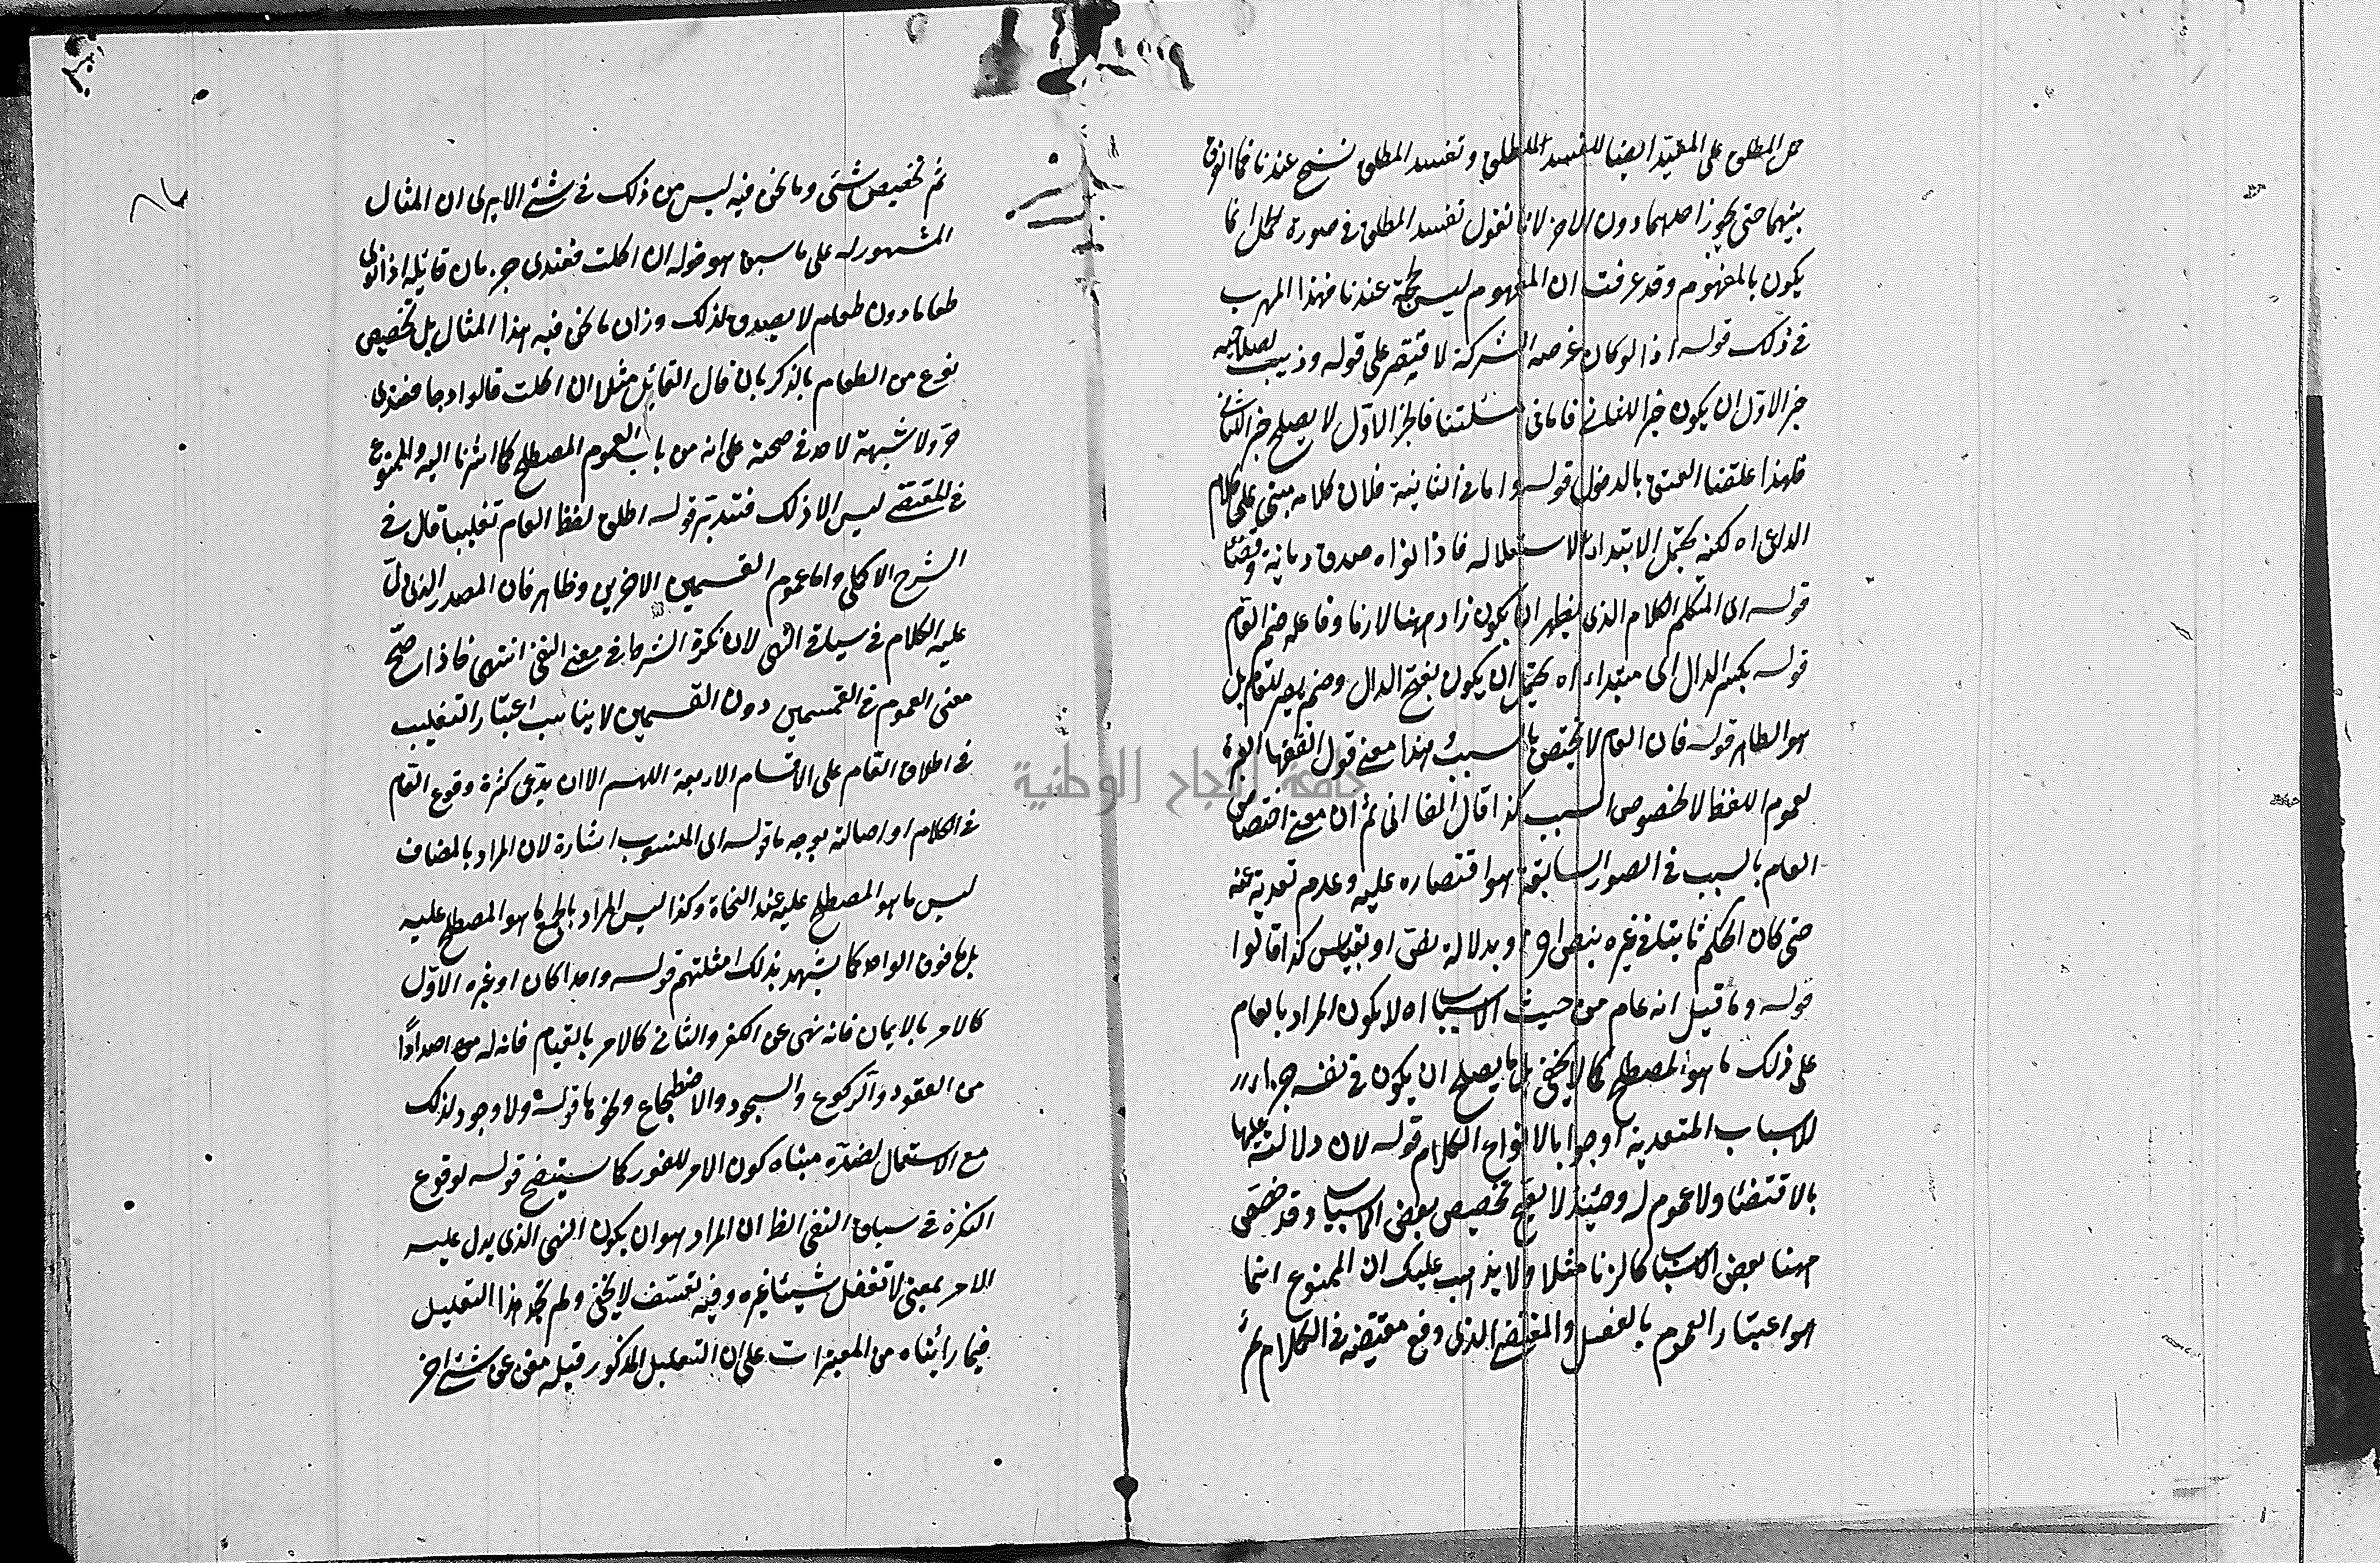 حمل المطلق على المقيد ايضا تقييد المطلق وتقييد المطلق نسخ عندنا فما الفرق
بينهما حتى يجوز احدهما دون الاخر لانا نقول تقييد المطلق في صورة الحمل انما
يكون بالمفهوم وقد عرفت ان المفهوم ليس بحجة عندنا فهذا المهرب
في ذلك قوله اذ لو كان غرضه الشركة لاقتصر على قوله وزينب لصلاحية
خبر الاول ان يكون خبرا للثاني فاما في مسئلتنا فالجزاء الاول لا يصلح خبرا للثاني
فلهذا علقنا العتق بالدخول قوله واما في الثانية فلان كلامه مبني على كلام
الداعي اه لكنه يحتمل الابتداء الاستقلاله فاذا نواه صدق ديانة وقضاء
قوله اي المتكلم الكلام الذي يظهر ان يكون زاد ههنا لازما وفاعله ضمير العام
قوله بكسر الدال اي مبتداء اه يحتمل ان يكون بفتح الدال وضميره للعام بل
هو الظاهر قوله فان العام لا يختص بالسبب هذا معنى قول الفقهاء العبرة
لعموم اللفظ لا لخصوص السبب كذا قال القاآني ثم ان معنى اختصاص
العام بالسبب في الصور السابقة هو اقتصاره عليه وعدم تعديته عنه
حتى كان الحكم ثابتا في غيره بنص اخر وبدلالة نص او بقياس كذا قالوا
قوله وما قيل انه عام من حيث الاسباب اه لا يكون المراد بالعام
على ذلك ما هو المصطلح كما لا يخفى بل ما يصلح ان يكون في نفسه جزاء
للاسباب المتعدية اوجوابا لانواع الكلام قوله لان دلالته عليها
بالاقتضاء ولا عموم له وحينئذ لا يصح تخصيص بعض الاسباب وقد خص
ههنا بعض الاسباب كالزنا مثلا ولا يذهب عليك ان الممنوع انما
هو اعتبار العموم بالفعل والمقتضى الذي وقع مقتضيه في الكلام ثم
ثم تخصيص شئ وما نحن فيه ليس من ذلك في شئ الا يرى ان المثال
المشهور له على ما سبق هو قوله ان اكلت فعبدي حر فان قائله اذا نوى
طعاما دون طعام لا يصدق لذلك وزان ما نحن فيه هذا المثال بل تخصيص
نوع من الطعام بالذكر بان قال القائل مثلا ان اكلت فعبدي
حر ولا شبهة لاحد في صحته على انه من باب العموم المصطلح كما اشرنا اليه والممنوع
في المقتضى ليس الا ذلك فتدبر قوله اطلق لفظ العام تغليبا قال في
الشرح الاكملي واما عموم القسمين الاخرين فظاهر فان المصدر الذي دل
عليه الكلام في سياق النهي لان نكرة الشرط في معنى النفي انتهى فاذا صح
معنى العموم في القسمين دون القسمين لا يناسب اعتبار التغليب
في اطلاق العام على الاقسام الاربعة اللهم الا ان يدعى كثرة وقوع العام
في الكلام او اصالته بوجه ما قوله اي المنسوب اشارة لان المراد بالمضاف
ليس ما هو المصطلح عليه عند النحاة وكذا ليس المراد بالجمع ما هو المصطلح عليه
بل ما فوق الواحد كما يشهد بذلك امثلتهم قوله واحدا كان او غيره الاول
كالامر بالايمان فانه نهي عن الكفر والثاني كالامر بالقيام فانه له اضدادا
من القعود والركوع والسجود والاضطجاع ونحوها قوله ولا وجود لذلك
مع الاشتغال بضده مبناه كون الامر للفور كما سيتضح قوله لوقوع
النكرة في سياق النفي الظ ان المراد هو ان يكون النهي الذي يدل عليه
الامر بمعنى لا تفعل شيئا غيره وفيه تعسف لا يخفى ولم نجد هذا التعليل
فيما رايناه من المعتبرات على ان التعليل المذكور قبله مغن عن شئ اخر
جامعة النجاح الوطنية